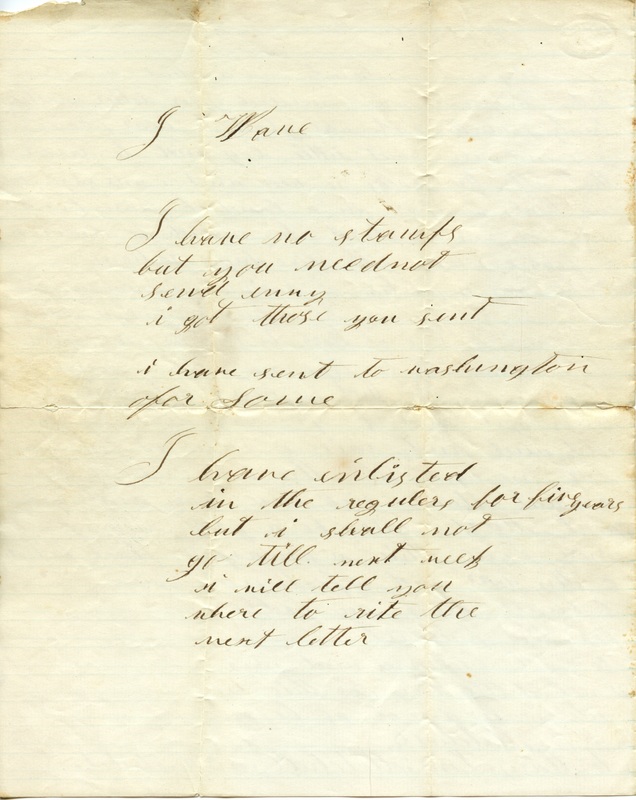 I have
I have no stamps
but you neednot
send enny
i got those you sent
i have sent to washington
for Some
I have enlisted
in the regulers for five years
but i shall not
go till next week
i will tell you
where to rite the
next letter